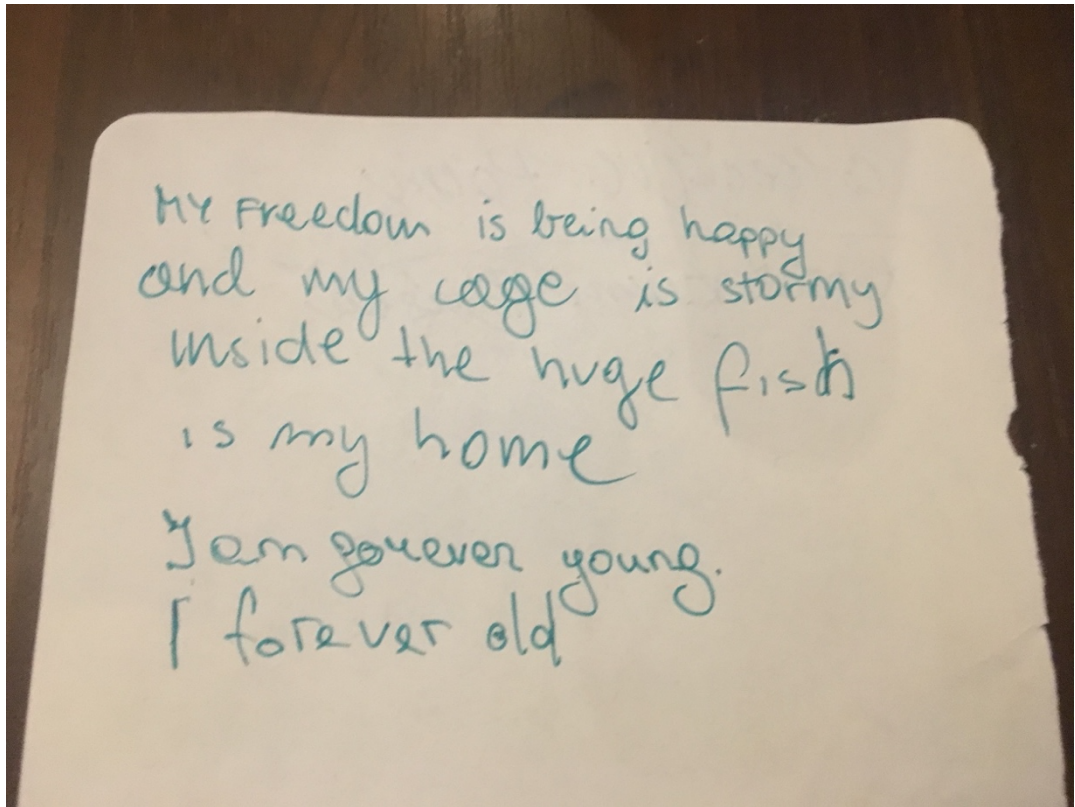 MY Freedom is being happy
and my cage is stormy
inside the huge fish
is my home
I am forever young.
I forever old